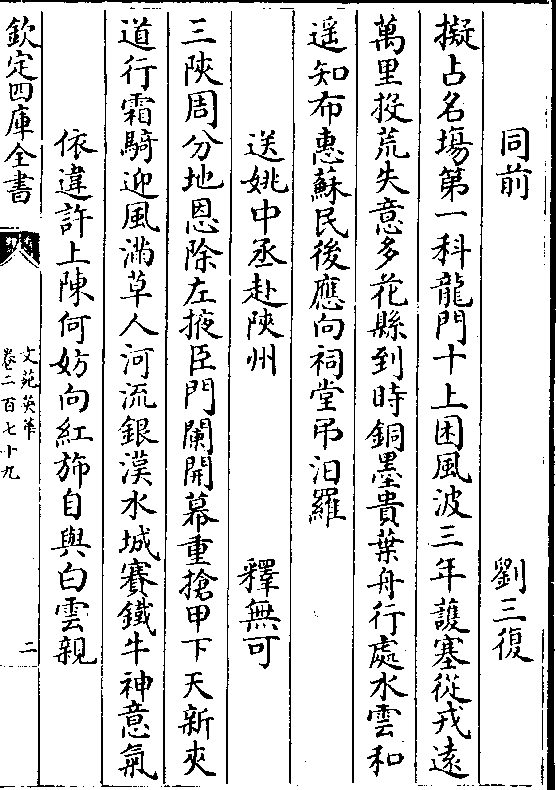 同前　劉三復
擬占名塲第一科龍門十上困風波三年護塞從戎逺
萬里投荒失意多花縣到時銅墨貴葉舟行處水雲和
遥知布惠蘇民後應向祠堂弔汨羅
送姚中丞赴陜州　釋無可
三陜周分地恩除左掖臣門闌開幕重搶甲下天新夾
道行霜騎迎風滿草人河流銀漢水城賽鐵牛神意氣
依違許上陳何妨向紅斾自與白雲親
欽定四庫全書
文苑英華
卷二百七十九
二